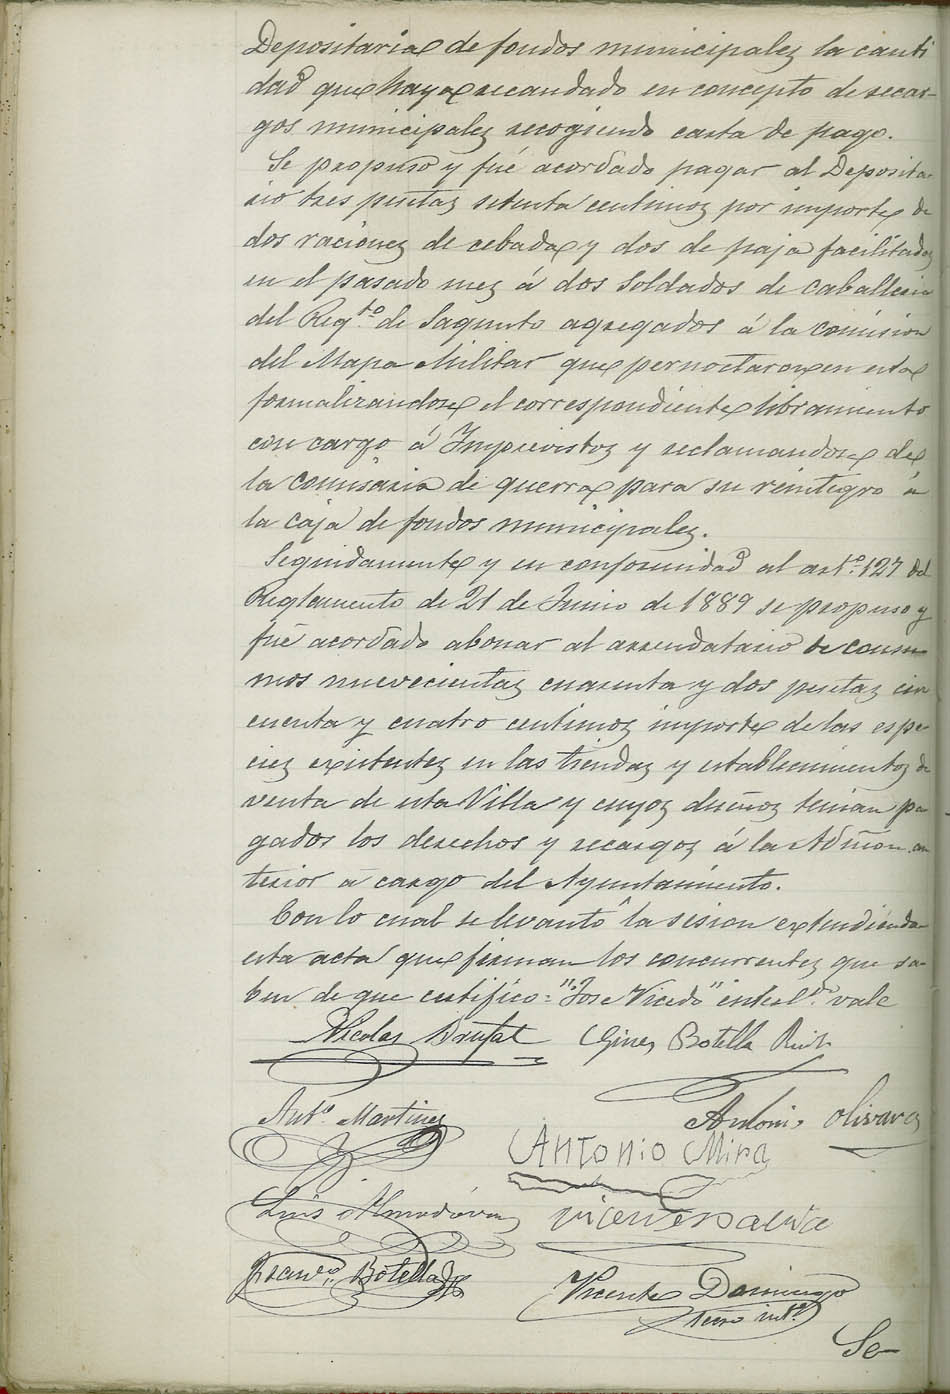 Depositaria de fondos municipales la canti
dad que haya recaudado en concepto de recar-
gos municipales recogiendo carta de pago.
Se propuso y fué acordado pagar al Deposita-
rio tres pesetas setenta centimos por importe de
dos raciones de cebada y dos de paja facilitadas
en el pasado mes á dos soldados de caballeria
del Regto. de Sagunto agregados á la comision
del Mapa Militar que pernoctaron en esta
formalizandose el correspondiente libramiento
con cargo á Imprevistos y reclamandose de
la comisaria de guerra para su reintegro á
la caja de fondos municipales.
Seguidamente y en conformidad al arto. 127 del
Reglamento de 21 de Junio de 1889 se propuso y
fué acordado abonar al arrendatario de consu-
mos nuevecientas cuarenta y dos pesetas cin
cuenta y cuatro centimos importe de las espe-
cies existentes en las tiendas y establecimientos de
venta de esta Villa y cuyos dueños tenian pa
gados los derechos y recargos á la Admon. an
terior a cargo del Ayuntamiento.
Con lo cual se levantó la sesion extendiéndo
esta acta que firman los concurrentes que sa-
ben de que certifico: "Jose Vicedo" entreldo. vale
Nicolas Brufal Gines Botella
Anto. Martinez Antonio Olivares
Antonio Mira
Luis Almodóvar
Franco. Botella Vicente Domingo
Srio intº.
Se-